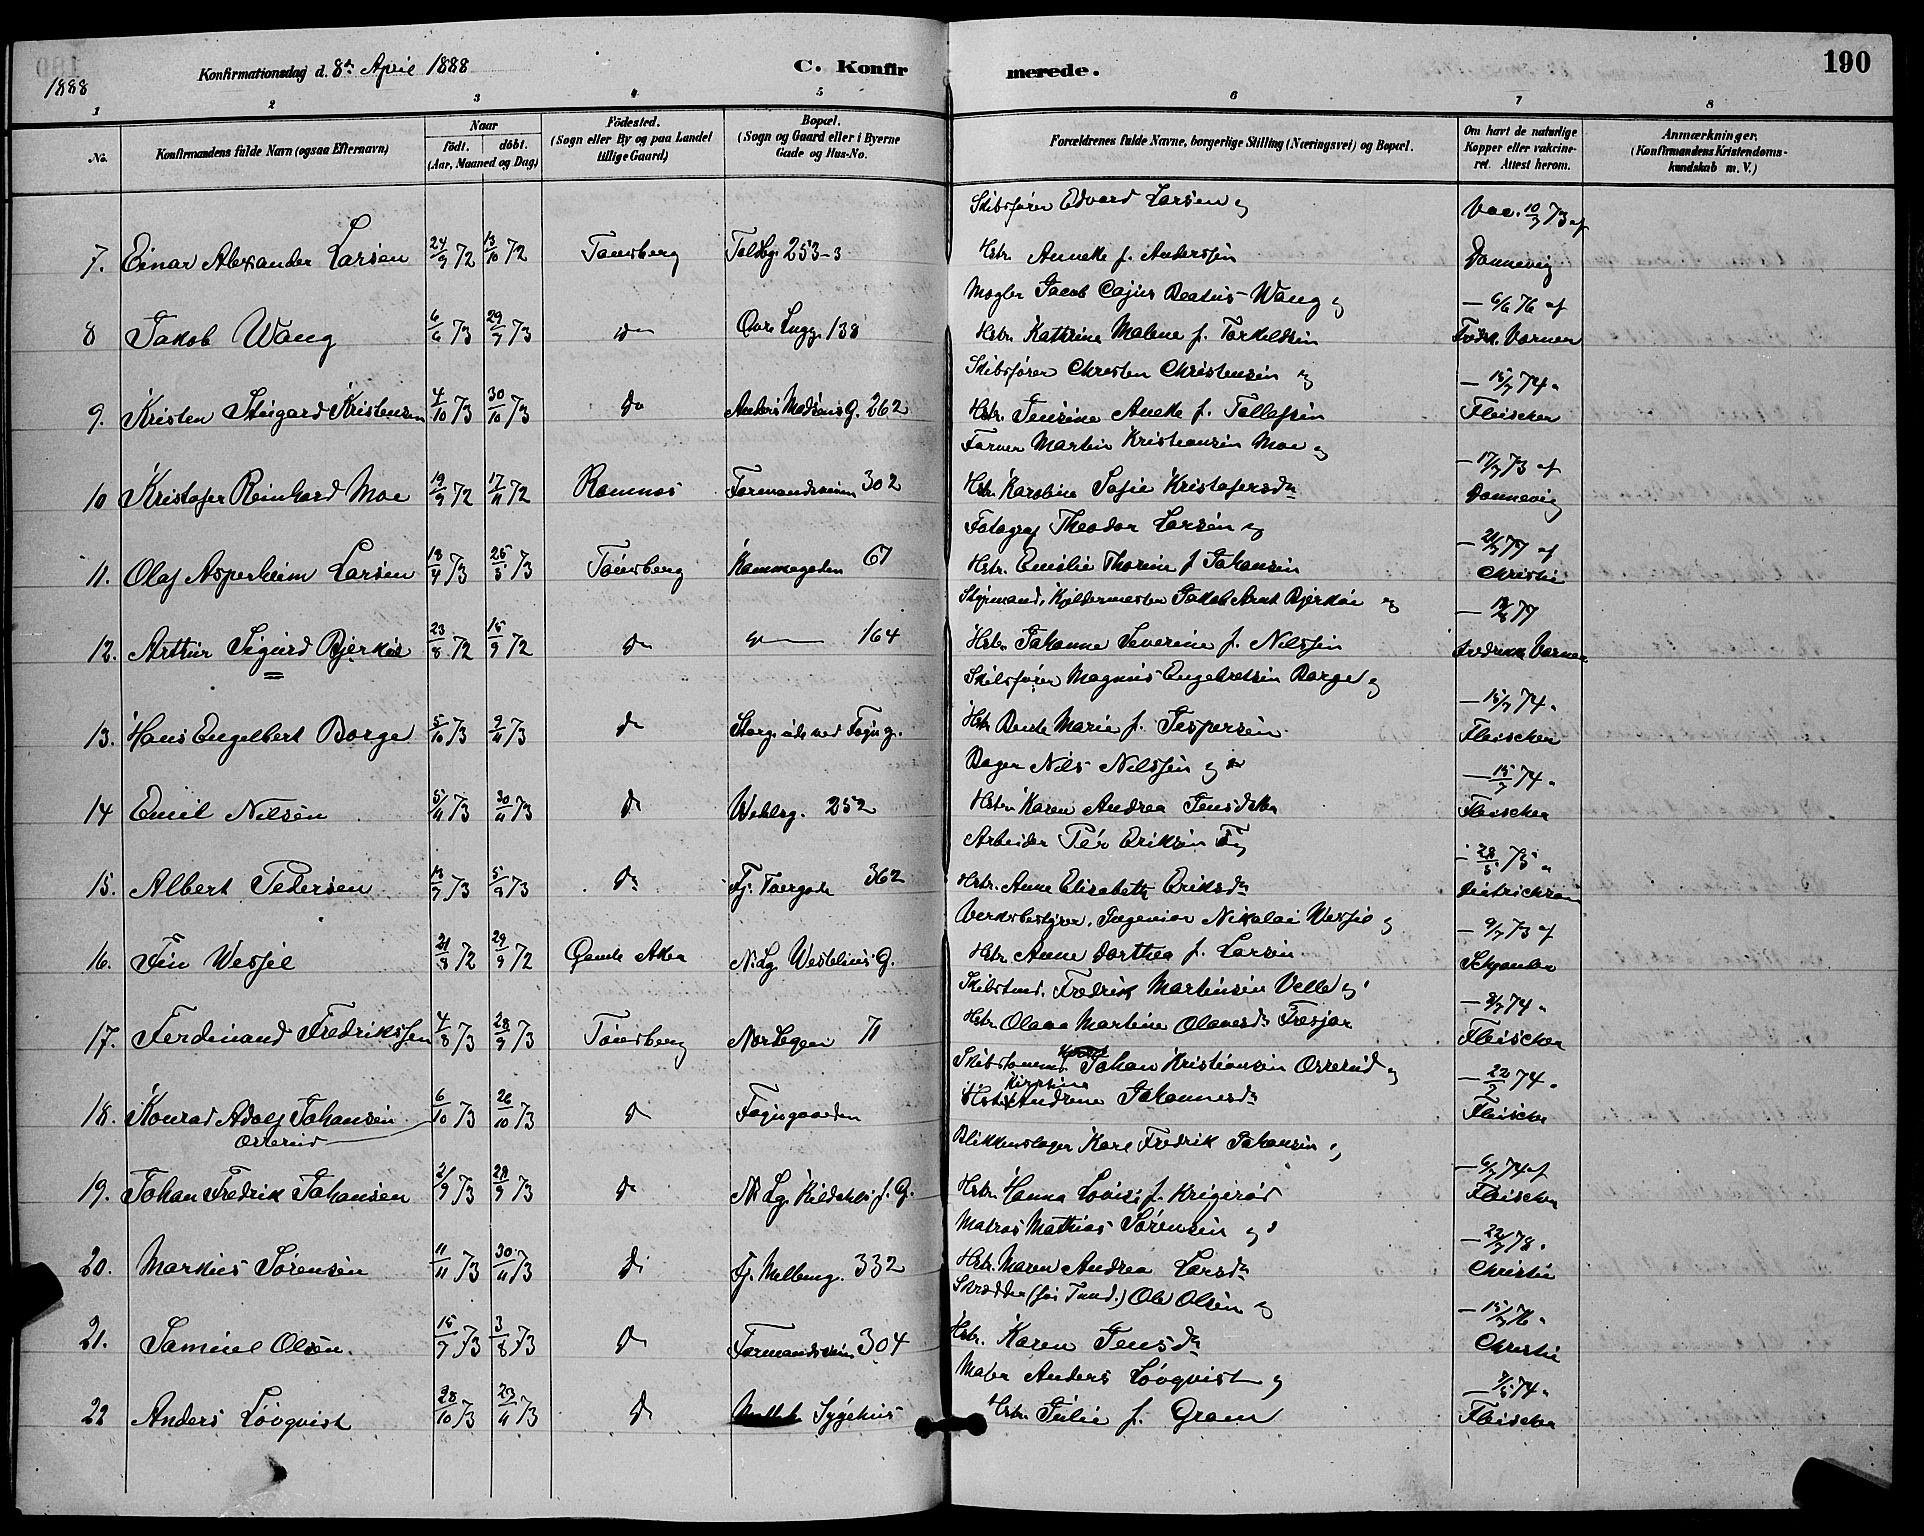 190
1888
Konfirmationsdag d. 8de April 1888
C. Konfirmerede.
1 2 3 4 5 6 7 8
No.
Konfirmandens fulde Navn (ogsaa Efternavn)
Naar
födt. döbt.
(Aar, Maaned og Dag)
Födested.
(Sogn eller By og paa Landet
tillige Gaard)
Bopæl.
(Sogn og Gaard eller i Byerne
Gade og Hus-No.
Forældrenes fulde Navne, borgerlige Stilling (Næringsvei) og Bopæl.
Om havt de naturlige
Kopper eller vakcine-
ret. Attest herom.
Anmærkninger.
(Konfirmandens Kristendoms-
kundskab m. V.)
Skibsfører Edvard Larsen og Vac. 10/7 73 af
7. Einar Alexander Larsen 24/9 72 13/10 72 Tønsberg Toldbg. 253-3 Hstr. Annette f. Anderssen Dannevig
Mægler Jacob Cajus Beatus Wang og — 6/6 76 af
8 Jakob Wang 6/6 73 29/7 73 do 138 Hstr. Kathrine Malene f. Torkeldsen Fredr. Vorner
Skibsfører Christen Christensen og — 15/7 74 "
9. Kristen Stengard Kristensen 4/10 73 30/10 73 do Anders Madsens G. 262 Hstr. Jensine Anette f. Tollefsen Fleischer
Farver Martin Kristiansen Moe og — 17/7 73 af
10 Kristofer Reinhard Moe 19/9 72 17/11 72 Ramnæs Farmandsveien 302 Hstr. Karoline Sofie Kristofersdr Dannevig
Fotograf Theodor Larsen og — 21/7 77 af
11. Olaf Asperheim Larsen 18/4 73 25/5 73 Tønsberg Kammegaden 67 Hstr. Emilie Thorine f Johansen Christie
Styrmand, Kjeldermester Jakob Arnt Bjerkøe og 77
12. Arthur Sigurd Bjerkøe 23/8 72 15/9 72 do 164 Hstr. Johanne Severine f. Nilssen Fredrik Vorner
Skibsfører Magnus Engebretsen Borge og — 15/7 74 "
13. Hans Engelbert Borge 5/10 73 9/11 73 do Hstr. Bente Marie f. Jespersen Fleischer
Bager Nils Nilssen og — 15/7 74 "
14 Emil Nilsen 5/11 73 30/11 73 do 252 Hstr. Karen Andrea Jensdatter Fleischer
Arbeider Per Eriksen 28/5 75 "
15. Albert Pedersen 13/7 73 5/8 73 do Fj. Tvergade 362 Hstr. Anne Elisabeth Eriksdr Dietrichson
Verksbestyrer, Ingeniør Nikolai Wessel og — 9/7 73 af
16. Fin Wessel 21/8 72 29/9 72 Gamle Aker N. Lg. G. Hstr. Anne Dorthea f. Larsen
Fredrik Martinsen Velle og — 74 "
17. Ferdinand Fredrikssen 4/8 73 28/9 73 Tønsberg Nordbyen 71 Hstr. Olava Martine Olavesdr Fresjar Fleischer
Johan Kristiansen Orrerud og — 22/2 74 "
18. Konrad Adolf Johansen 6/10 73 26/10 73 do Kirstine Andrine Johannesdr Fleischer
Orrerud
Blikkenslager Karl Fredrik Johansen og — 6/7 74 af
19. Johan Fredrik Johansen 2/9 73 28/9 73 do N. Lg. G. Hstr. Hanna Lovise f. Fleischer
Matros Mathias Sørensen og — 22/7 78 "
20. Markus Sørensen 11/11 73 30/11 73 do Fj. 332 Hstr. Maren Andrea Larsdr Christie
Skrædder Ole Olsen og — 15/7 76 "
21. Samuel Olsen 15/7 73 3/8 73 do Farmandsveien 304 Hstr. Karen Jensdr Christie
Maler Anders Løvqvist og 74 "
22 Anders Løvqvist 28/10 73 23/11 73 do Sygehus Hstr. Julie f. Gram Fleischer